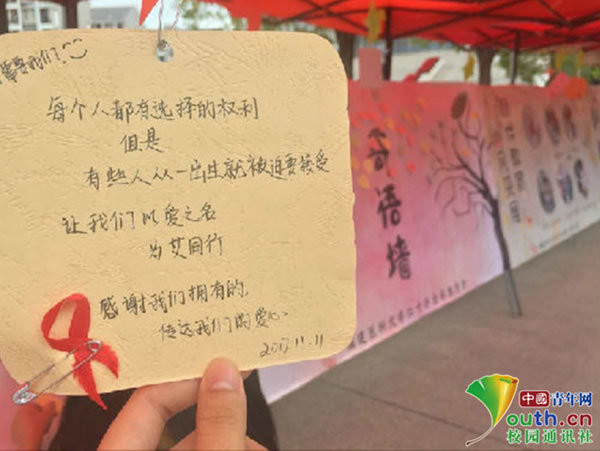 我们
每个人都有选择的权利
但是
有些人从一出生就被迫要接受
让我们以爱之名
为艾同行
感谢我们拥有的,
传达我们的爱心.
2017.11.11
寄语墙
中国青年网
Youth.cn
校园通讯社